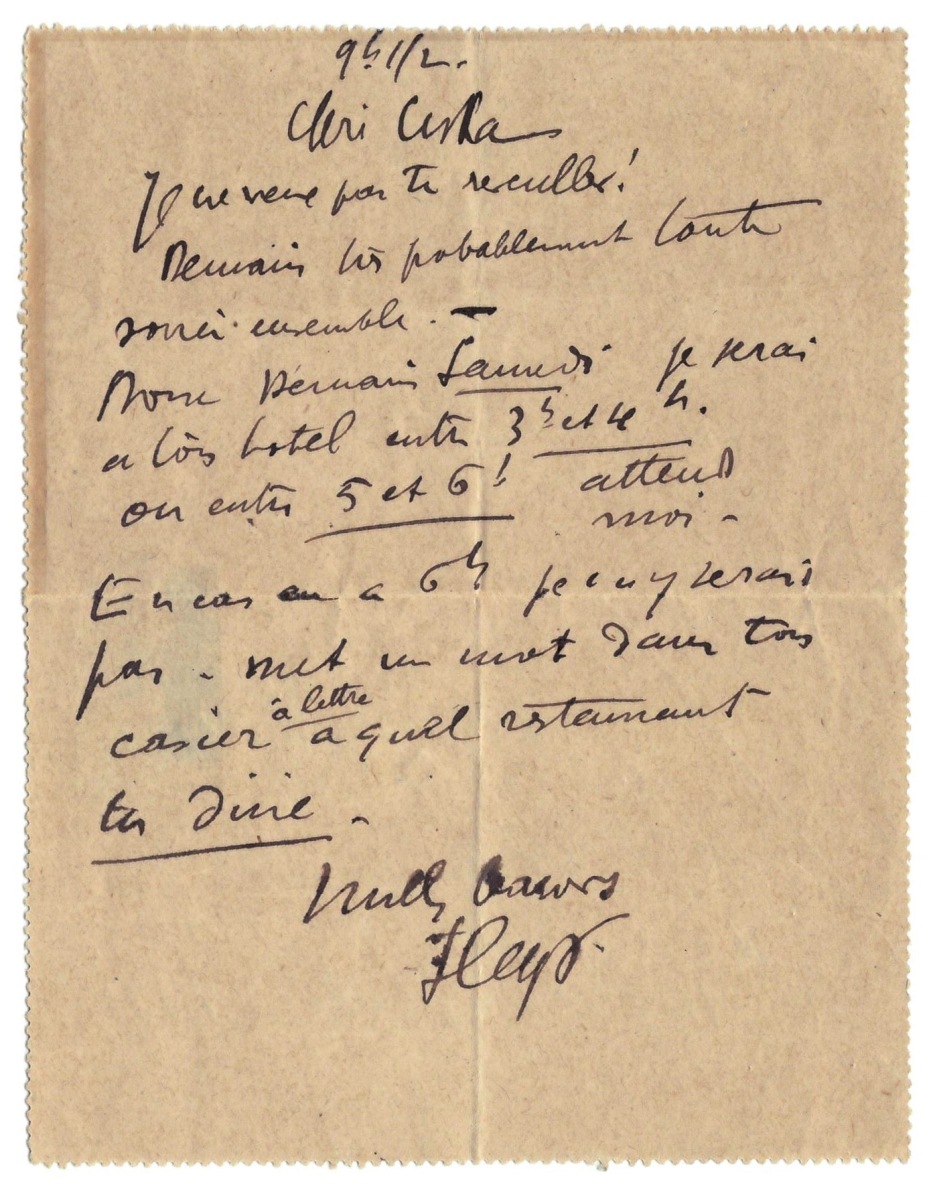 9h 1/2.
Cheri
Je ne veux pas te reveiller!
Demain très probablement toute
soirée ensemble. –
Donc Demain Samedi je serai
a ton hotel entre 3h et 4h.
ou entre 5 et 6! attend
moi –
En cas ou a 6h je n y serais
pas – met un mot dans ton
casier à lettre a quel restaurant
tu dine –
Mille baisers